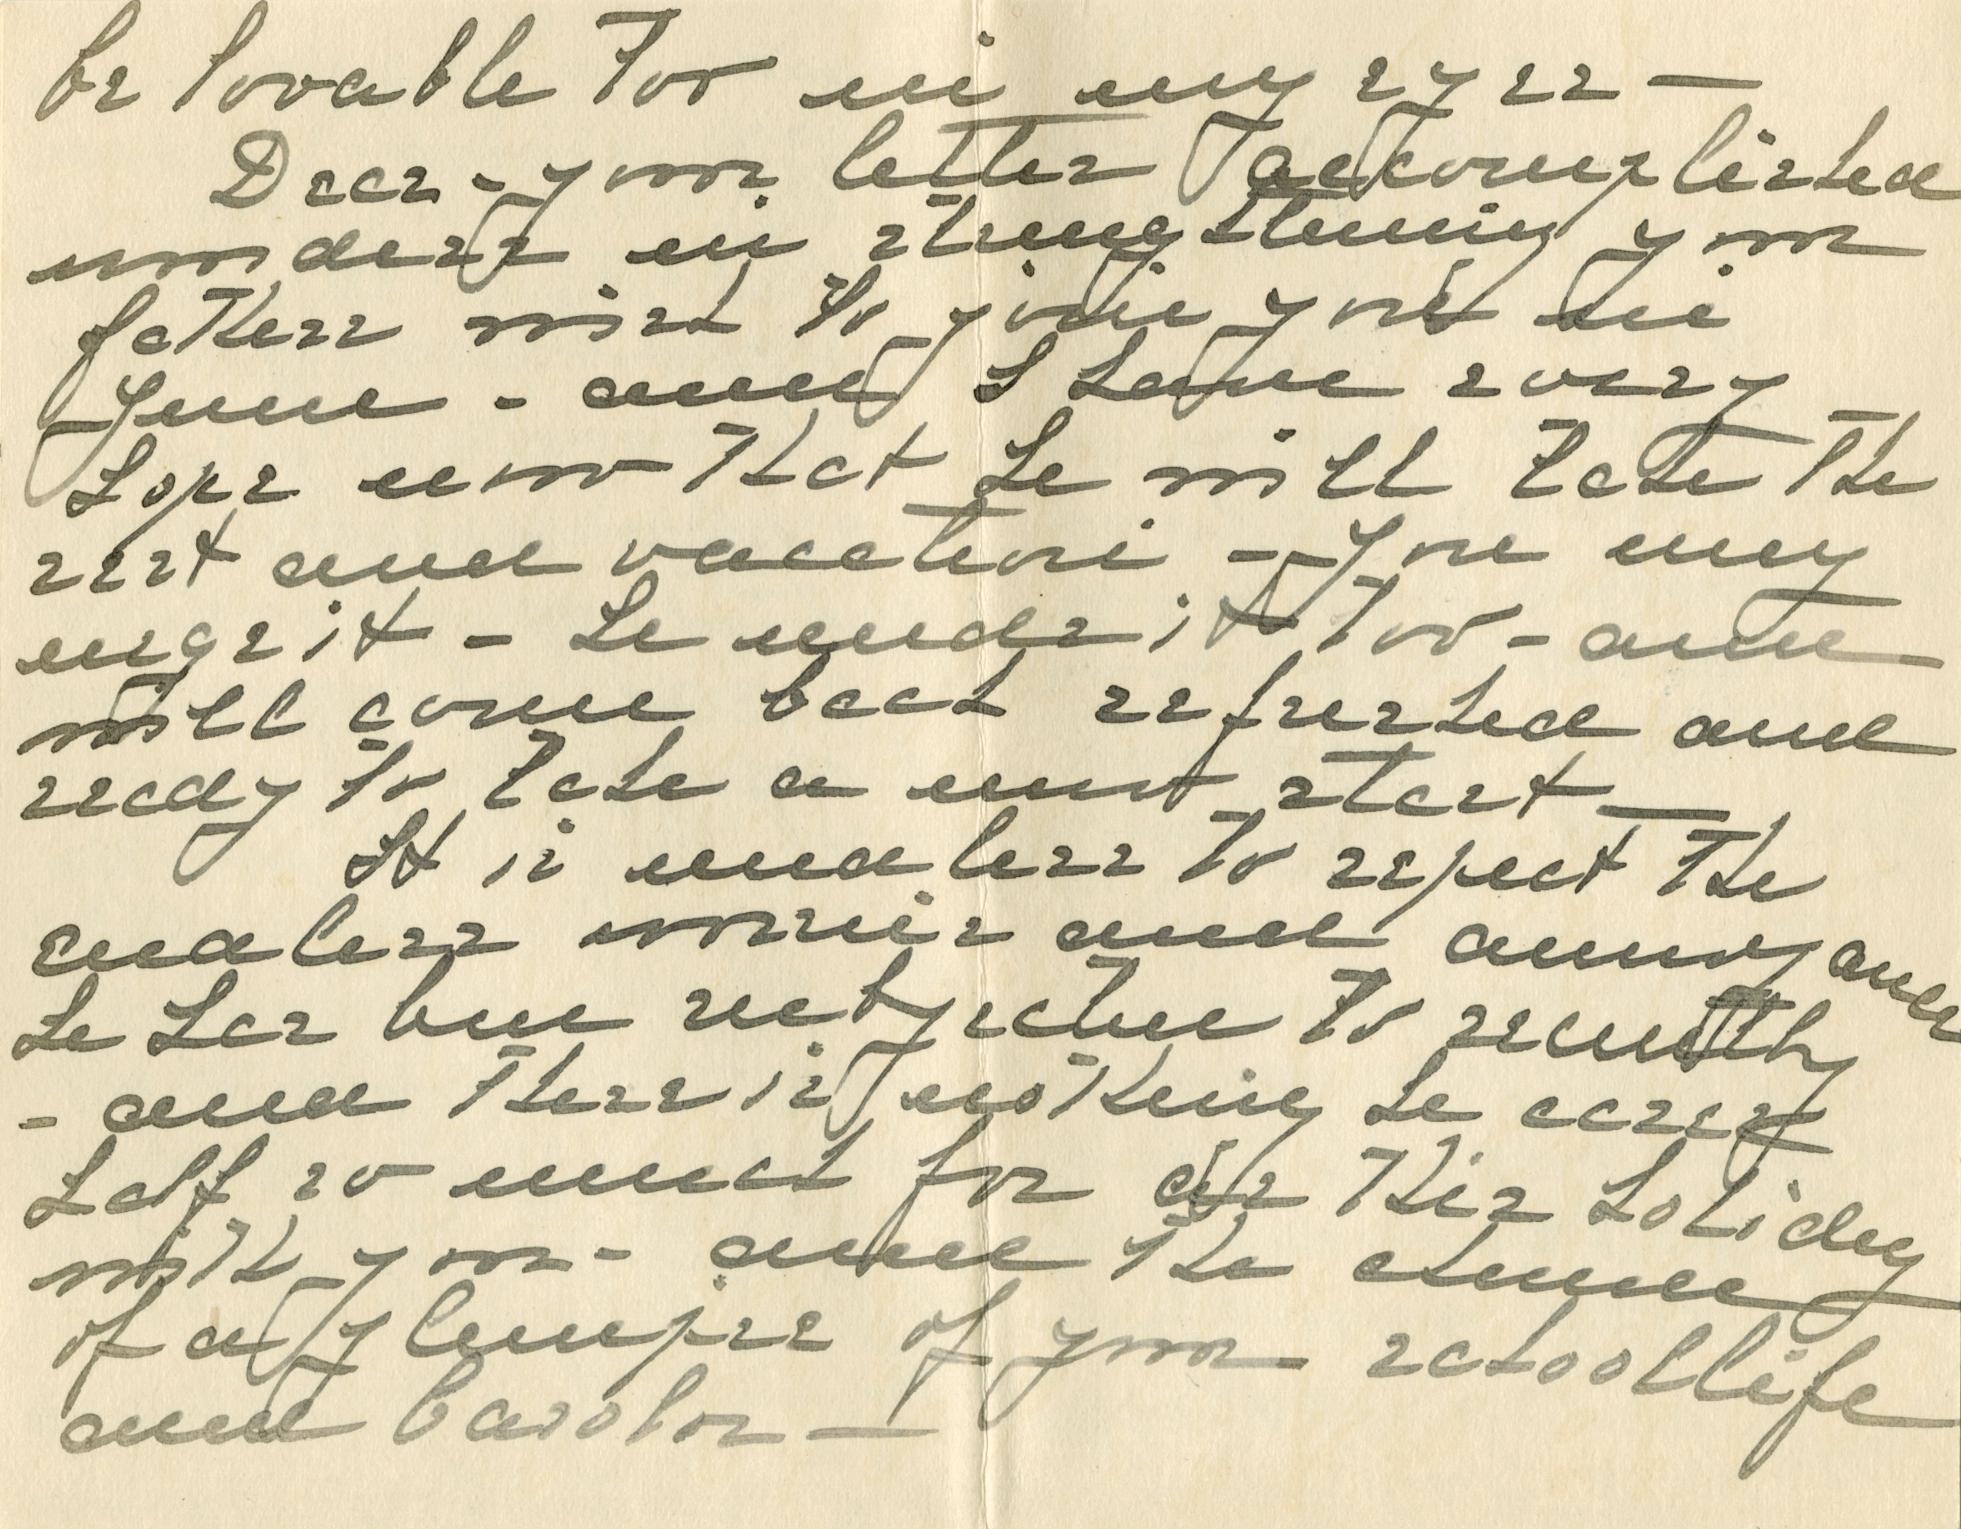 be lovable too in my eyes —
Dear - your letter accomplished
wonders in strengthening your
fathers wish to join you in
June - and I have every
hope now that he will take the
rest and vacation - you my
urge it - he needs it too - and
will come back refreshed and
ready to take a new start —
It is needless to repeat the
endless worries and annoyances
he has been subjected to recently
- and there is nothing he cares
half so much for as this holiday
with you - and the chance
of a glimpse of your school life
and Carolos —